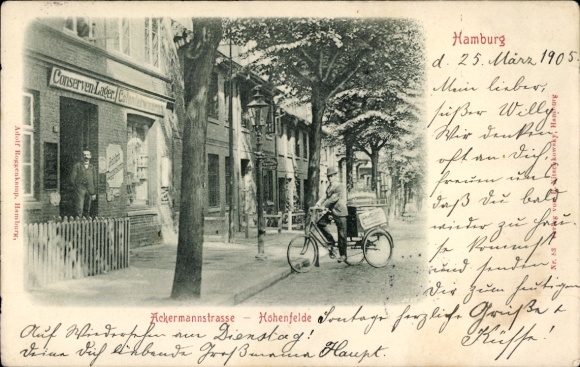 Hamburg
d. 25. März 1905.
Mein lieber,
süßer Willy
Wir denken
oft an Dich,
freuen uns
daß Du bald
wieder zu Hau-
se kommst
und senden
Dir zum heutigen
Sontage herzliche Grüße &
Küsse!
Auf Wiedersehn am Dienstag!
Deine Dich liebende Großmama Haupt.
Ackermannstrasse – Hohenfelde
Conserven-Lager
Adolf Roggenkamp, Hamburg.
Nr. 88 Verlag von Hamburg